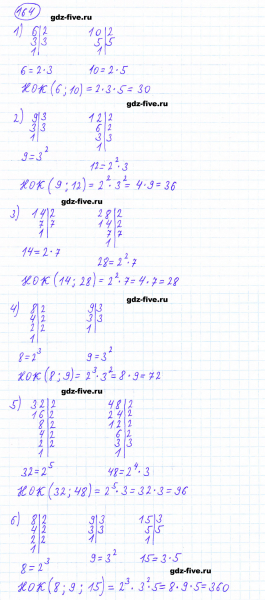 164
gdz-five.ru
1) 6|2 10|2
3|3 5|5
1| 1|
6=2·3 10=2·5
НОК(6;10)=2·3·5=30
gdz-five.ru
2) 9|3 12|2
3|3 6|2
1| 3|3
1|
9=3² 12=2²·3
НОК(9;12)=2²·3²=4·9=36
gdz-five.ru
3) 14|2 28|2
7|7 14|2
1| 7|7
1|
14=2·7
28=2²·7
НОК(14;28)=2²·7=4·7=28
gdz-five.ru
4) 8|2 9|3
4|2 3|3
2|2 1|
1|
8=2³ 9=3²
НОК(8;9)=2³·3²=8·9=72
gdz-five.ru
5) 32|2 48|2
16|2 24|2
8|2 12|2
4|2 6|2
2|2 3|3
1| 1|
32=2⁵ 48=2⁴·3
НОК(32;48)=2⁵·3=32·3=96
gdz-five.ru
6) 8|2 9|3 15|3
4|2 3|3 5|5
2|2 1| 1|
1|
8=2³ 9=3² 15=3·5
gdz-five.ru
НОК(8;9;15)=2³·3²·5=8·9·5=360